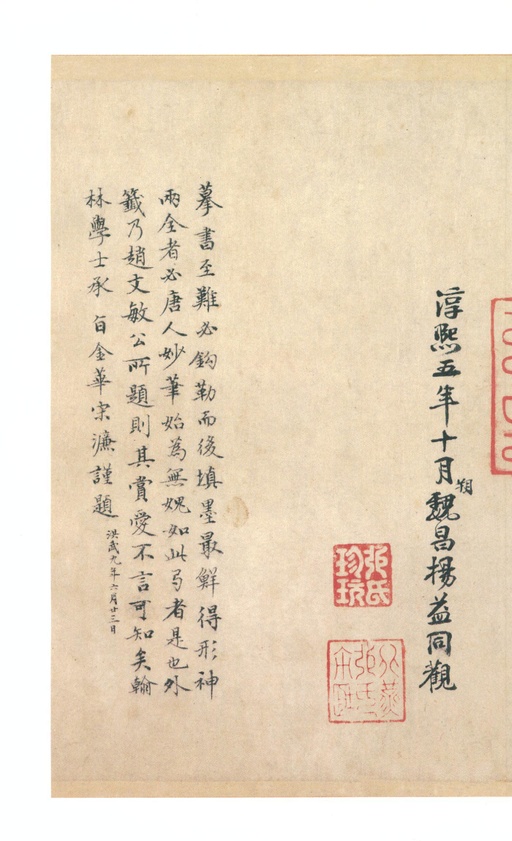 淳熙五年十月朔魏昌楊益同觀
張氏珍玩
摹書至難必鈎勒而後填墨最鮮得形神
兩全者必唐人妙筆始為無媿如此弓者是也外
籤乃趙文敏公所題則其賞愛不言可知矣翰
林學士承旨金華宋濂謹題
洪武九年六月廿三日